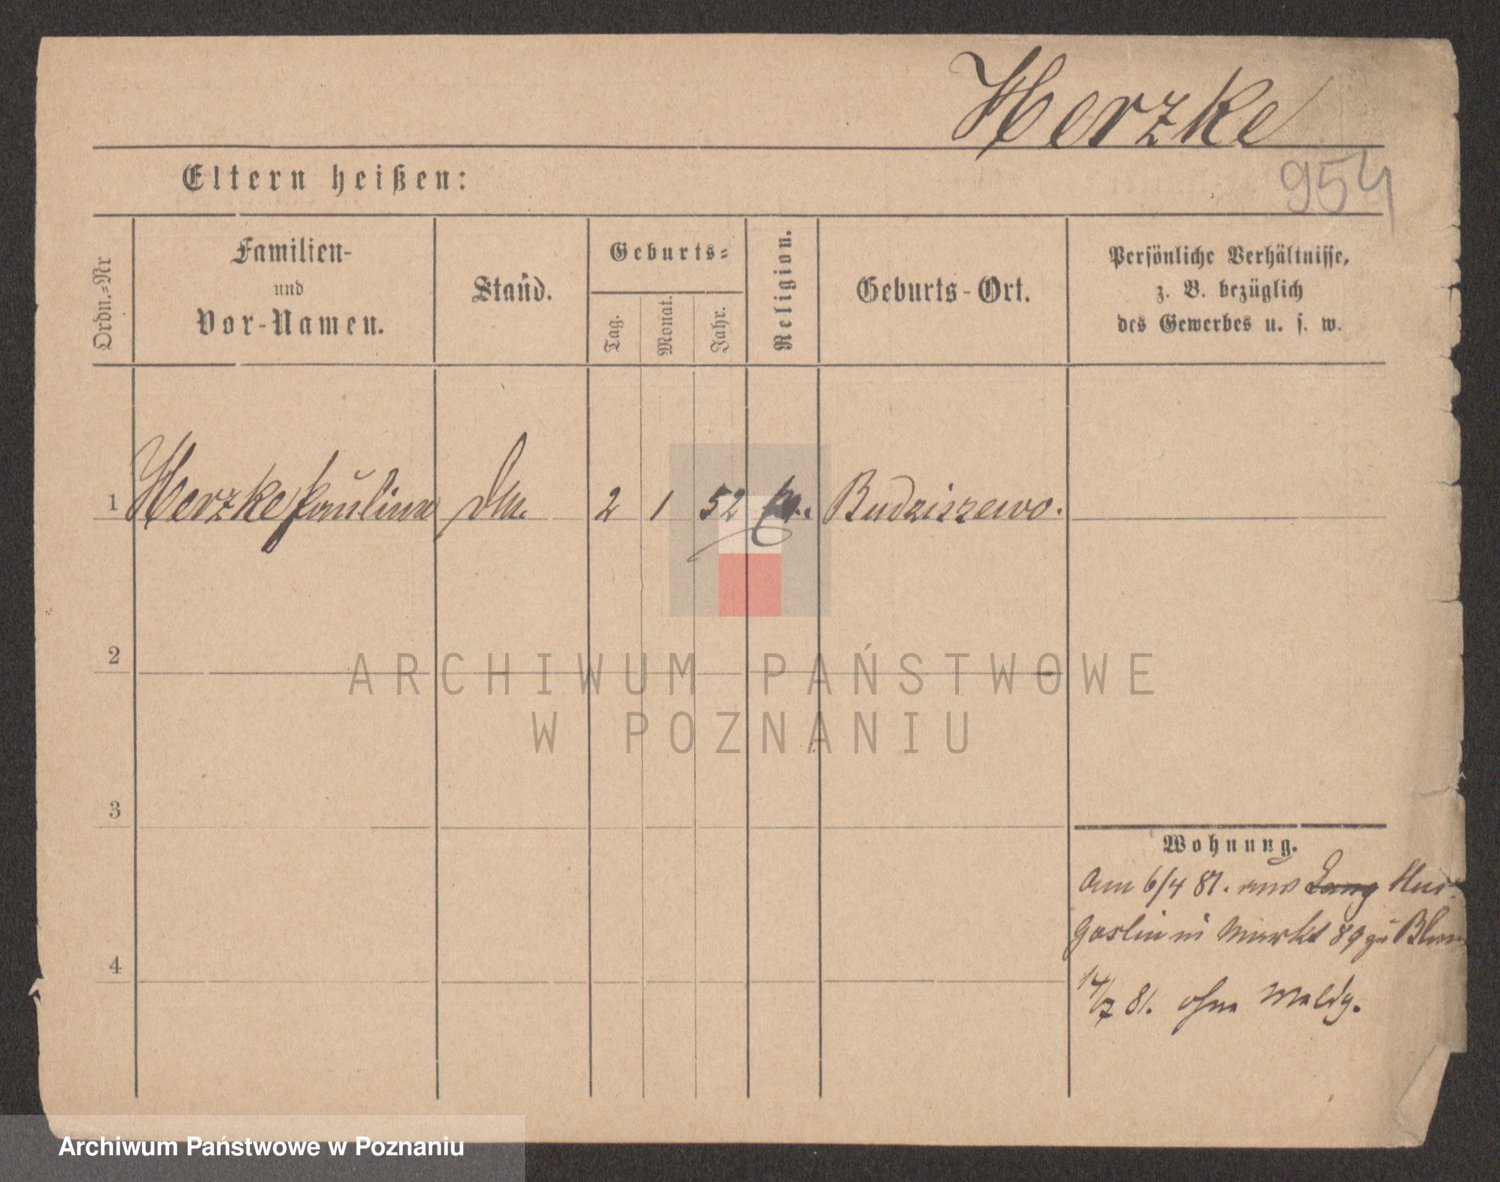 Herzke
954
Eltern heißen:
Ordn.-Nr
Familien-
und
Vor-Namen.
Stand.
Geburts-
Tag.
Monat.
Jahr.
Religion.
Geburts-Ort.
Persönliche Verhältnisse,
z. B. bezüglich
des Gewerbes u. s. w.
1 Herzke Paulina 2 1 52 Budziszewo.
2
3
4
Wohnung.
6/4 81. aus Lang
Goslin in Markt 89
17/7 81. ohne Meldg.
ARCHIWUM PAŃSTWOWE
W POZNANIU
Archiwum Państwowe w Poznaniu